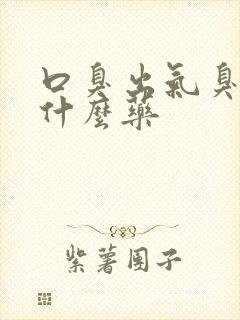 口臭出氣臭
什麼藥
紫薯團子